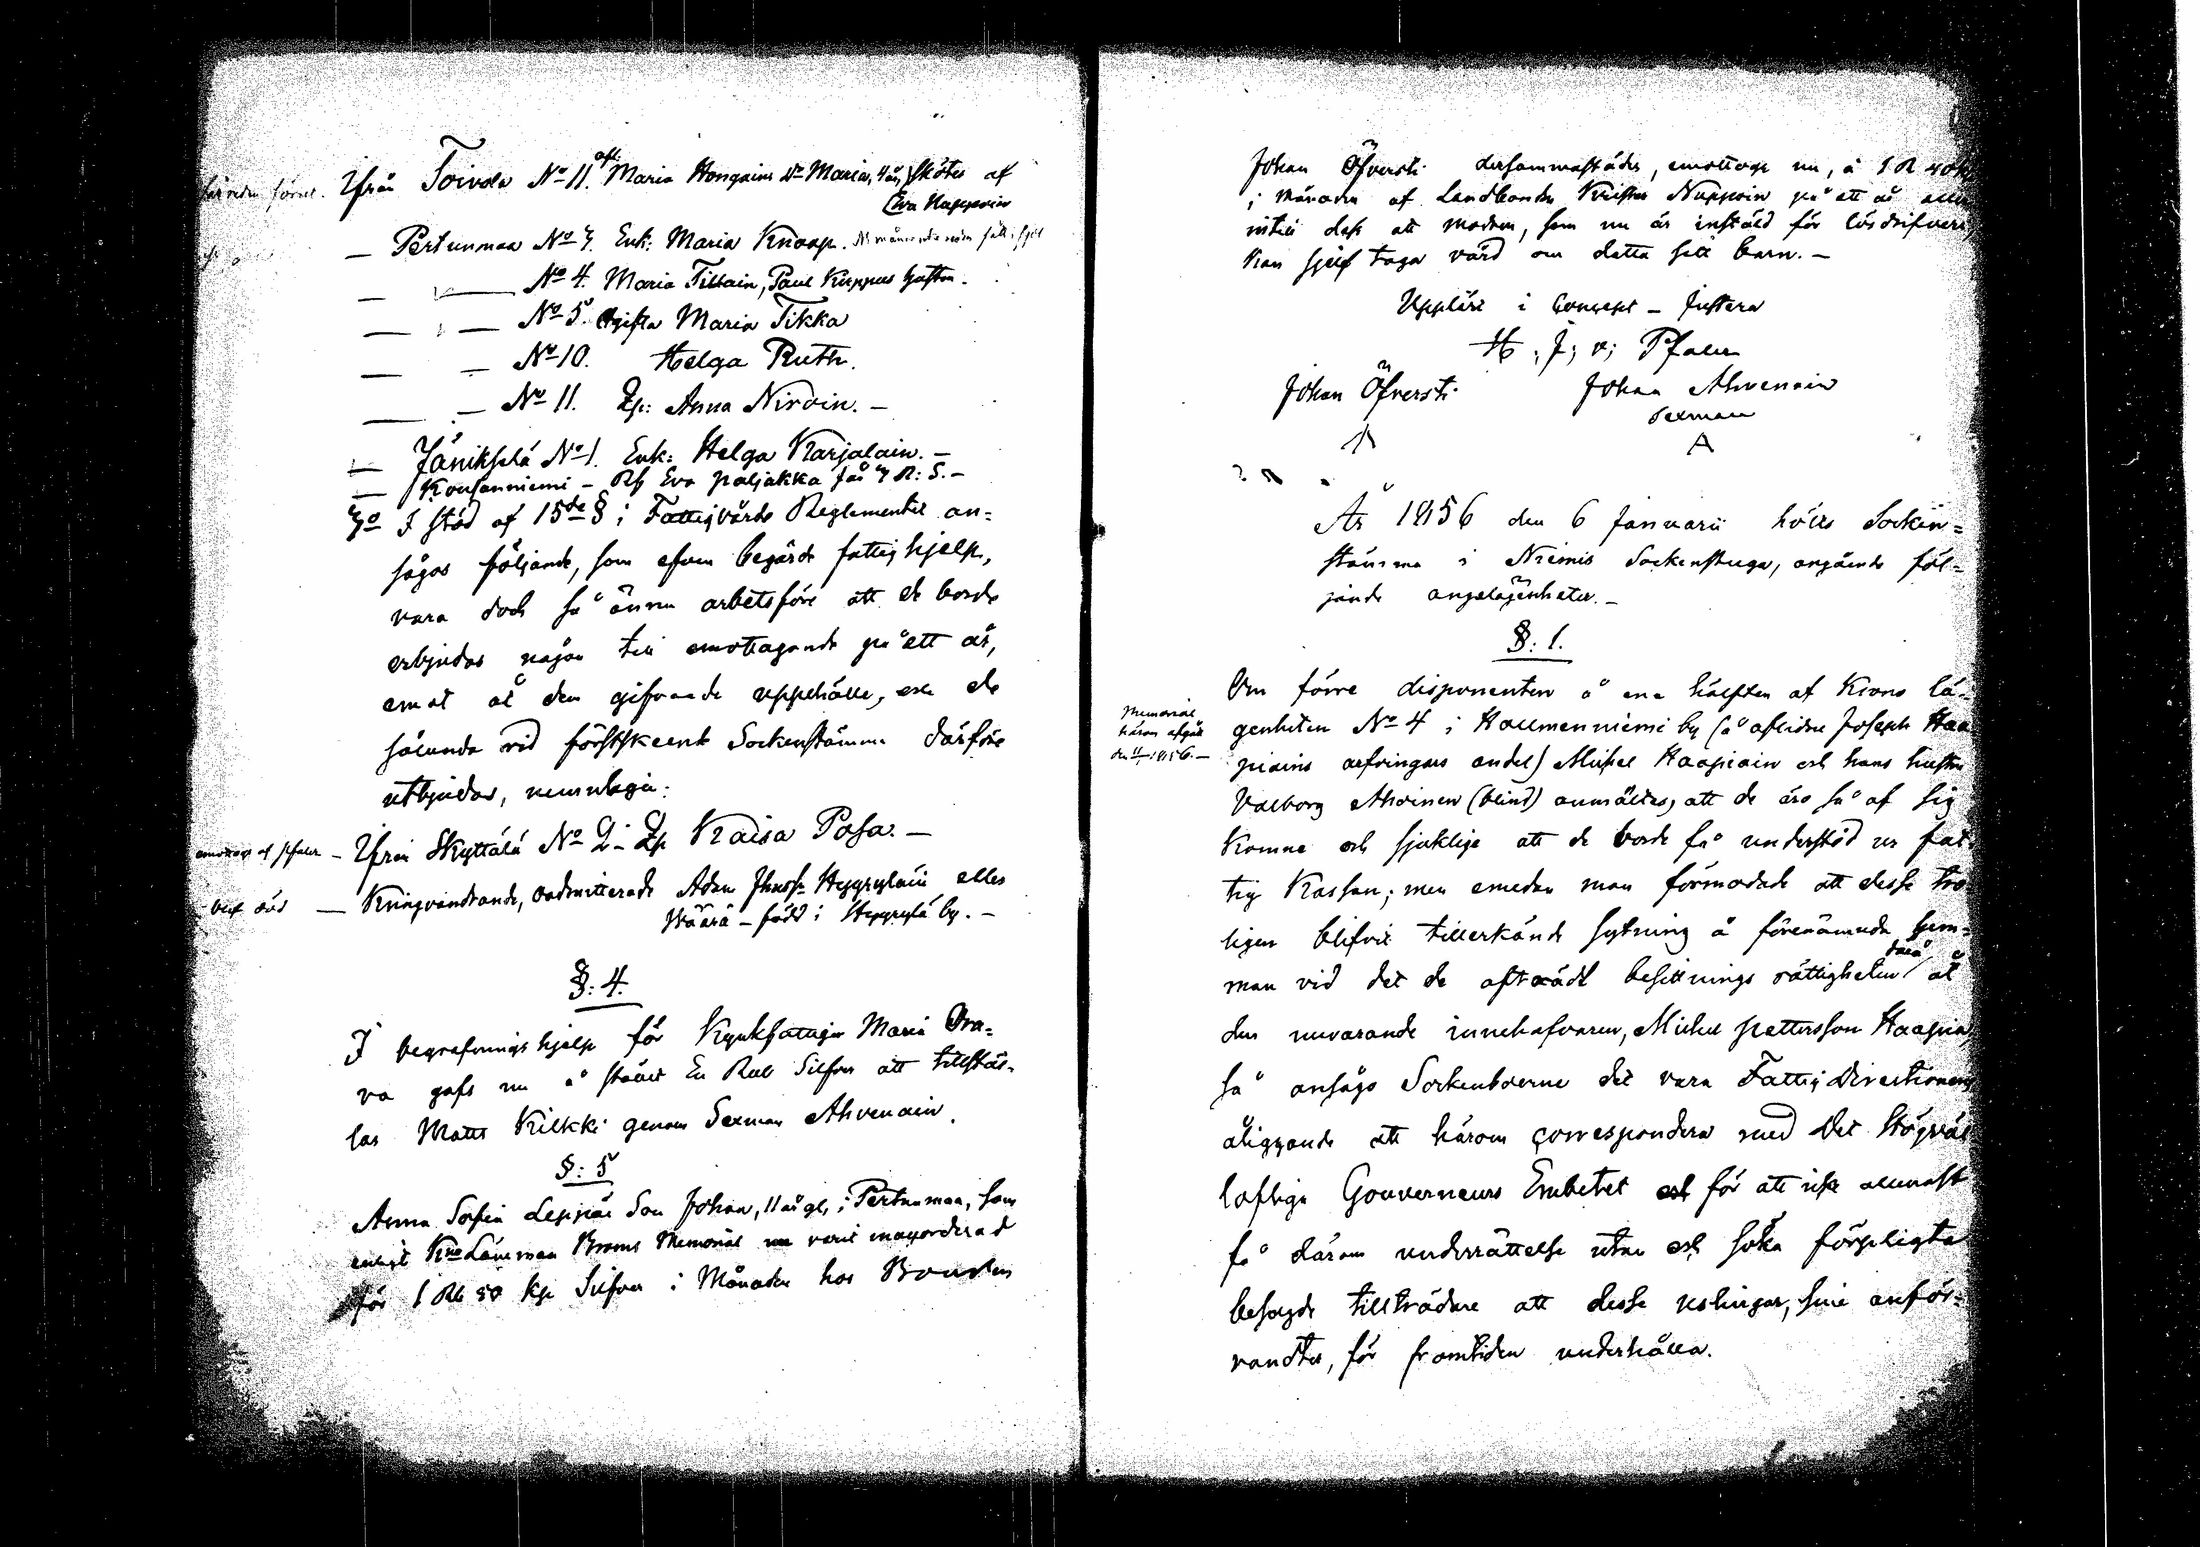 Ifrån Toivola No 11. aft: Maria Hongains dr Maria, 4 år, skötes af
Eva Happoin
— Pertunmaa No 7. Enk: Maria Knaap.
— No 4. Maria Tiltain, Paul Kuppus hustru.
— No 5. Ogifta Maria Tikka
— No 10. Helga Ruth.
— No 11. Enk: Anna Niroin. —
— Jänikselä No 1. Enk: Helga Karjalain. —
— Kousanniemi — Eva Paljakka får 7 R: S. —
7o I stöd af 15de § i Fattigvårds Reglementet an=
sågos följande, som efven begärde fattighjelp,
vara doch så ännu arbetsföre att de borde
erbjudas någon till emottagande på ett år,
emot åt dem gifvande uppehälle, och de
sålunda vid förstskeende Sockenstämma därföre
utbjudas, nemnligen:
emottagen af Pfaler — Ifrån Skyttälä No 2 — Kaisa Posa. —
blef död — Kringvandrande, oadmitterade Adam Johnsson Heppyläin eller
Wäärä — född i Heppylä by. —
§: 4.
I begrafningshjelp för Kyrkhjonet Maria Ora=
va gafs nu å stället En Rub Silfver att tillstäl=
las Matts Kilkki genom Sexman Ahvenain.
§: 5
Anna Sofia Leppäs Son Johan, 11 år gl, i Pertunmaa, som
enligt Krono Länsman Broms Memorial varit inaccorderad
för 1 Rb 50 kp Silfver i Månaden hos Bonden
Johan Öfversti dersammastädes, emottogs nu, à 1 R 40 k
i Månaden af Landbonden Krister Nuppoin på ett år eller
intill dess att modren, som nu är instäld för lösdrifveri,
kan sjelf taga vård om detta sitt barn. —
Uppläst i Concept — Justera
H. J. v; Pfaler
Johan Öfversti Johan Ahvenain
Sexman
År 1856 den 6 Januarii hölts Socken=
stämma i Niemis Sockenstuga, angående föl=
jande angelägenheter. —
§: 1.
Memorial
härom afgått
den 11/1 1856. —
Om förre disponenten å ena hälften af Krono lä=
genheten No 4 i Hallmenniemi by (å aflidne Joseph Haa
piains arfvingars andel) Mickel Haapiain och hans hustru
Valborg Ahoinen (blind) anmältes, att de äro så af sig
komne och sjuklige att de borde få understöd ur fat
tig Kassan; men emedan man förmodade att desse tro
ligen blifvit tillerkände sytning å förenämnde hem=
man vid det de afträdt besittnings rättigheten dera åt
den nuvarande innehafvaren, Mickel Pettersson Haapiain,
så ansågo Sockenboerne det vara Fattig Directionens
åliggande att härom correspondera med Det Högväl
loflige Gouverneurs Embetet och för att icke allenast
få därom underrättelse utan och söka förpligta
besagde tillträdare att desse uslingar, sine anför=
vandter, för framtiden underhålla.